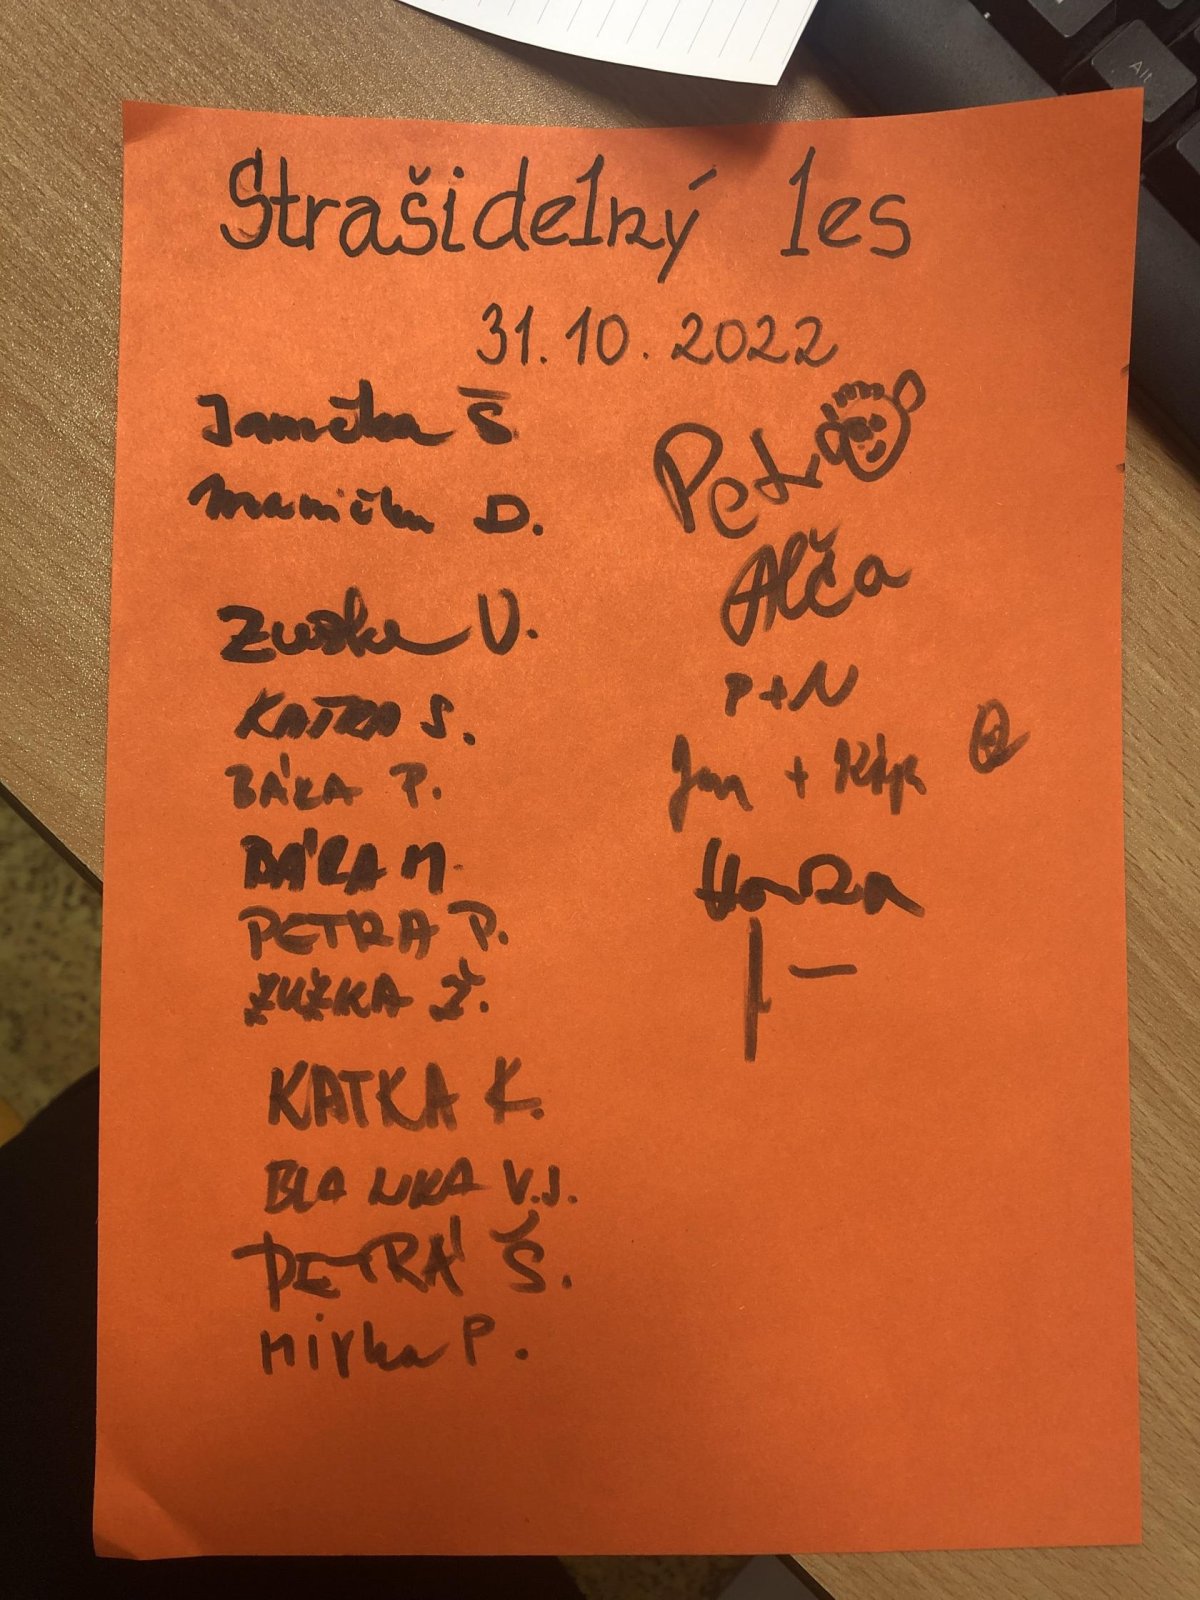 Strašidelný les
31.10.2022
Janička Š
Manička D.
Zuzka V.
KATKA S.
BÁRA P.
BÁRA M.
PETRA P.
ZUZKA Ž.
KATKA K.
BLANKA V.J.
PETRA Š.
Mirka P.
Petr
Alča
P+N
Jan +
Honza
Alt